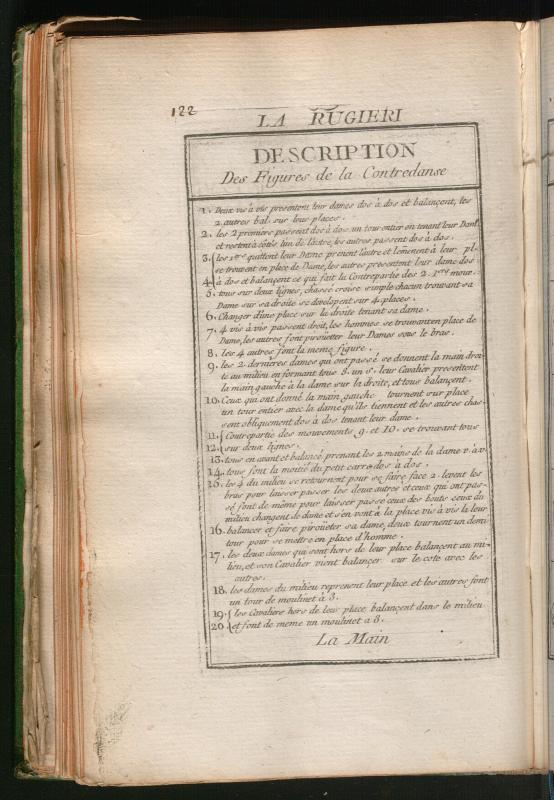 122
LA RUGIERI
DESCRIPTION
Des Figures de la Contredanse
1. Deux vis à vis presentent leur dames dos à dos et balançent, les
2 autres bal. sur leurs places.
2. les 2 premiers passent dos à dos un tour entier en tenant leur Dame
et restent à côtés l'un de l'autre, les autres passent dos à dos.
3. les 1ers quittent leur Dame prenent l'autre et lemenent à leur pl.
se trouvent en place de Dame, les autres presentent leur dame dos
4. à dos et balançent ce qui fait la Contrepartie des 2. 1ers mouv.
5. tous sur deux lignes, chassé croisé simple chacun trouvant sa
Dame sur sa droite se developent sur 4. places.
6. Changer d'une place sur la droite tenant sa dame.
7. 4 vis à vis passent droit, les hommes se trouvant en place de
Dame, les autres font piroüeter leur Dames sous le bras.
8. les 4 autres font la meme figure.
9. les 2. dernieres dames qui ont passé se donnent la main droi-
te au milieu en formant tous 8. un S. leur Cavalier presentent
la main gauche à la dame sur la droite, et tous balançent.
10. Ceux qui ont donné la main gauche tournent sur place
un tour entier avec la dame qu'ils tiennent et les autres chas-
sent obliquement dos à dos tenant leur dame.
11. Contrepartie des mouvements 9. et 10. se trouvant tous
12. sur deux lignes.
13. tous en avant et balancé prenant les 2 mains de la dame v. à v.
14. tous font la moitié du petit carré dos à dos.
15. les 4 du milieu se retournent pour se faire face 2. levent les
bras pour laisser passer les deux autres et ceux qui ont pas-
sé font de même pour laisser passé ceux des bouts ceux du
milieu changent de dame et s'en vont à la place vis à vis la leur.
16. balancer et faire piroüeter sa dame, deux tournent un demi
tour pour se mettre en place d'homme.
17. les deux dames qui sont hors de leur place balançent au mi-
lieu, et son Cavalier vient balançer sur le côté avec les
autres.
18. les dames du milieu reprenent leur place et les autres font
un tour de moulinet à 3.
19. les Cavaliers hors de leur place balançent dans le milieu
20. et font de meme un moulinet à 3.
La Main